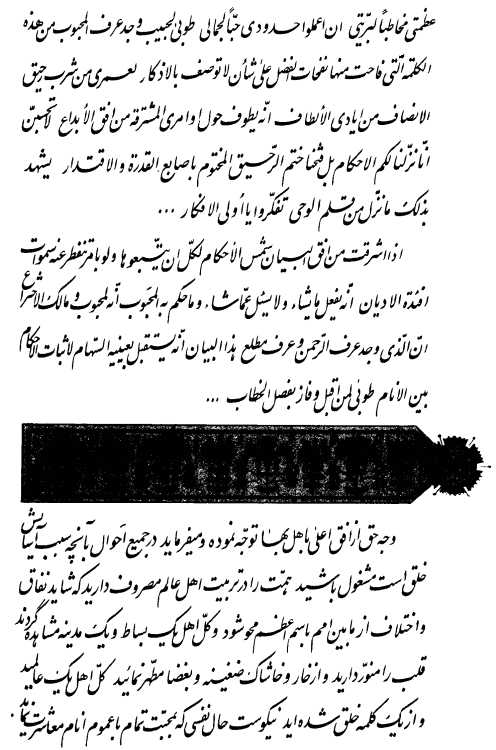 عظمتی مخاطباً لبریّتی ان اعملوا حدودی حبّاً لجمالی طوبی لحبیب وجد عرف المحبوب من هذه
الکلمة الّتی فاحت منها نفحات الفضل علی شأن لا توصف بالاذکار لعمری من شرب رحیق
الانصاف من ایادی الألطاف انّه یطوف حول اوامری المشرقة من افق الأبداع لا تحسبنّ
انّا نزّلنا لکم الاحکام بل فتحنا ختم الرّحیق المختوم باصابع القدرة والاقتدار یشهد
بذلک ما نزّل من قلم الوحی تفکّروا یا أولی الافکار ...
اذا اشرقت من افق البیان شمس الأحکام لکلّ ان یتّبعوها ولو بامر تنفطر عنه سموات
افئدة الادیان انّه یفعل ما یشاء ولا یسئل عمّا شاء وما حکم به المحبوب انّه لمحبوب و مالک الاختراع
انّ الّذی وجد عرف الرّحمن و عرف مطلع هذا البیان انّه یستقبل بعینیه السّهام لاثبات الأحکام
بین الانام طوبی لمن اقبل و فاز بفصل الخطاب ...
وجه حق از افق اعلی باهل بها توجّه نموده و میفرماید در جمیع احوال بآنچه سبب آسایش
خلق است مشغول باشید همّت را در تربیت اهل عالم مصروف دارید که شاید نفاق
و اختلاف از مابین امم باسم اعظم محو شود و کلّ اهل یک بساط و یک مدینه مشاهده گردند
قلب را منوّر دارید و از خار و خاشاک ضغینه و بغضا مطهّر نمائید کلّ اهل یک عالمید
و از یک کلمه خلق شده‌اید نیکوست حال نفسی که بمحبّت تمام با عموم انام معاشرت نماید.